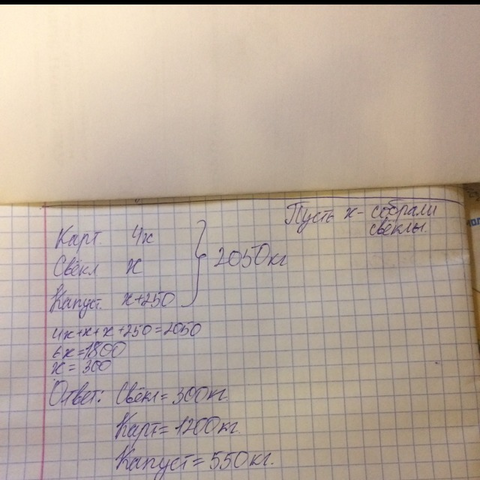 Пусть x - собрали
свеклы.
Карт. 4x
Свёкл x
Капуст. x+250
2050кг
4x+x+x+250=2050
6x=1800
x=300
Ответ: Свёкл=300кг
Карт=1200кг
Капуст=550кг.